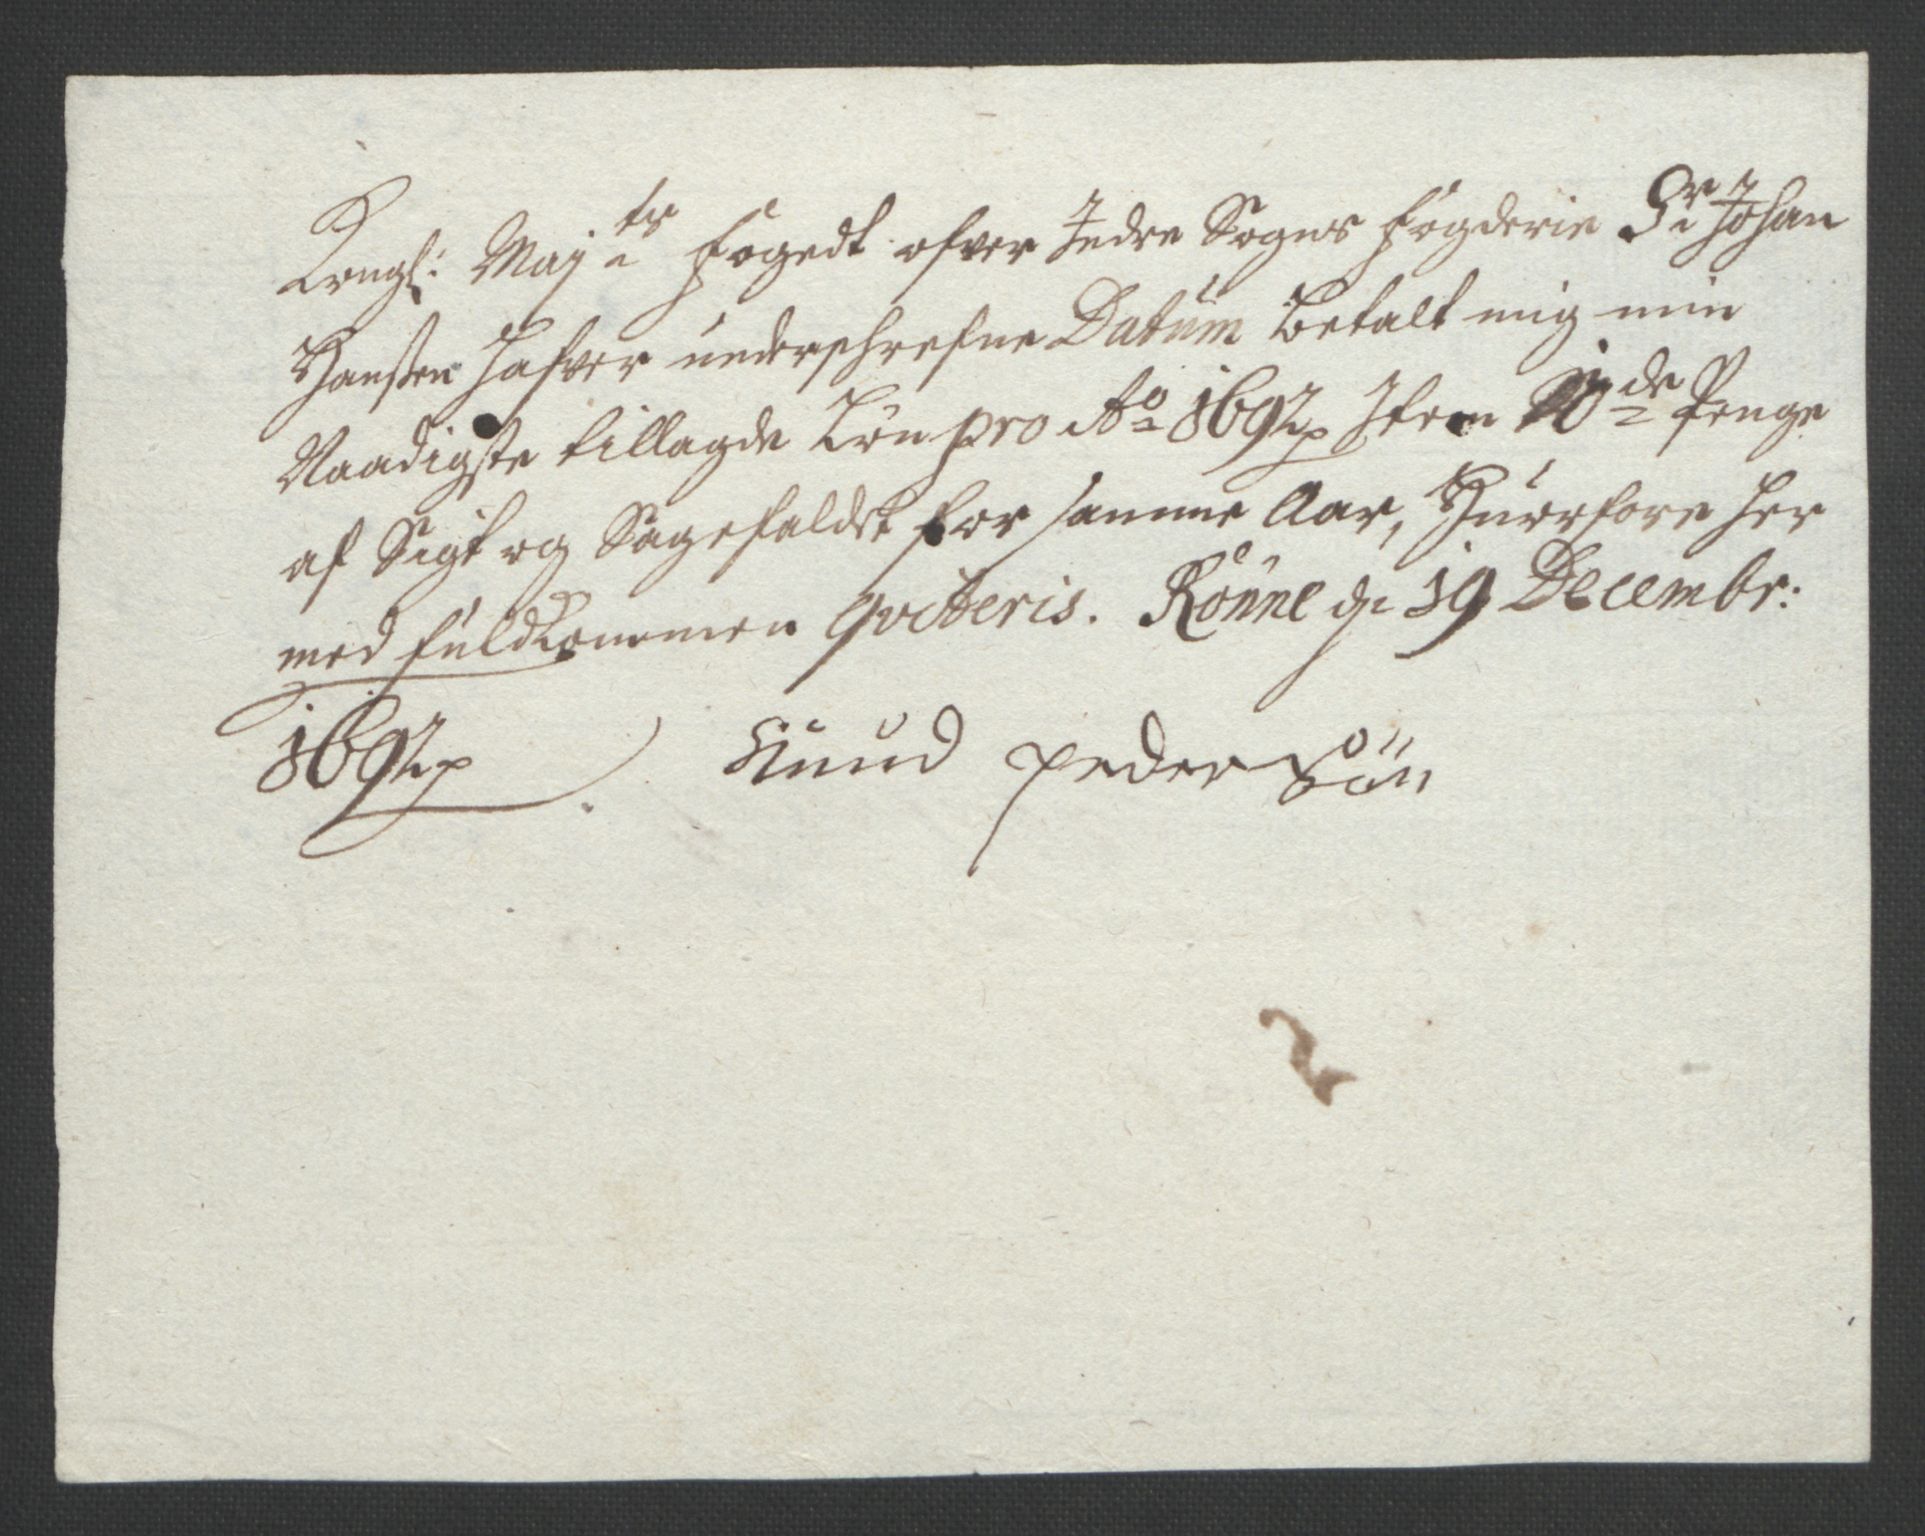 Kongl: Maj:ts Fogedt ofver Indre Sogns Fogderie Sr Johan
Hansen hafver underschrefne Datum betalt mig min
Naadigste tillagde Løn pro Ao 1692 Item 10de Penge
af Sigt og Sagefaldet for samme Aar, Huorfore her
med fuldkommen qvitteris. Rönne d. 19 Decembr:
1692
Knud Peder Søn